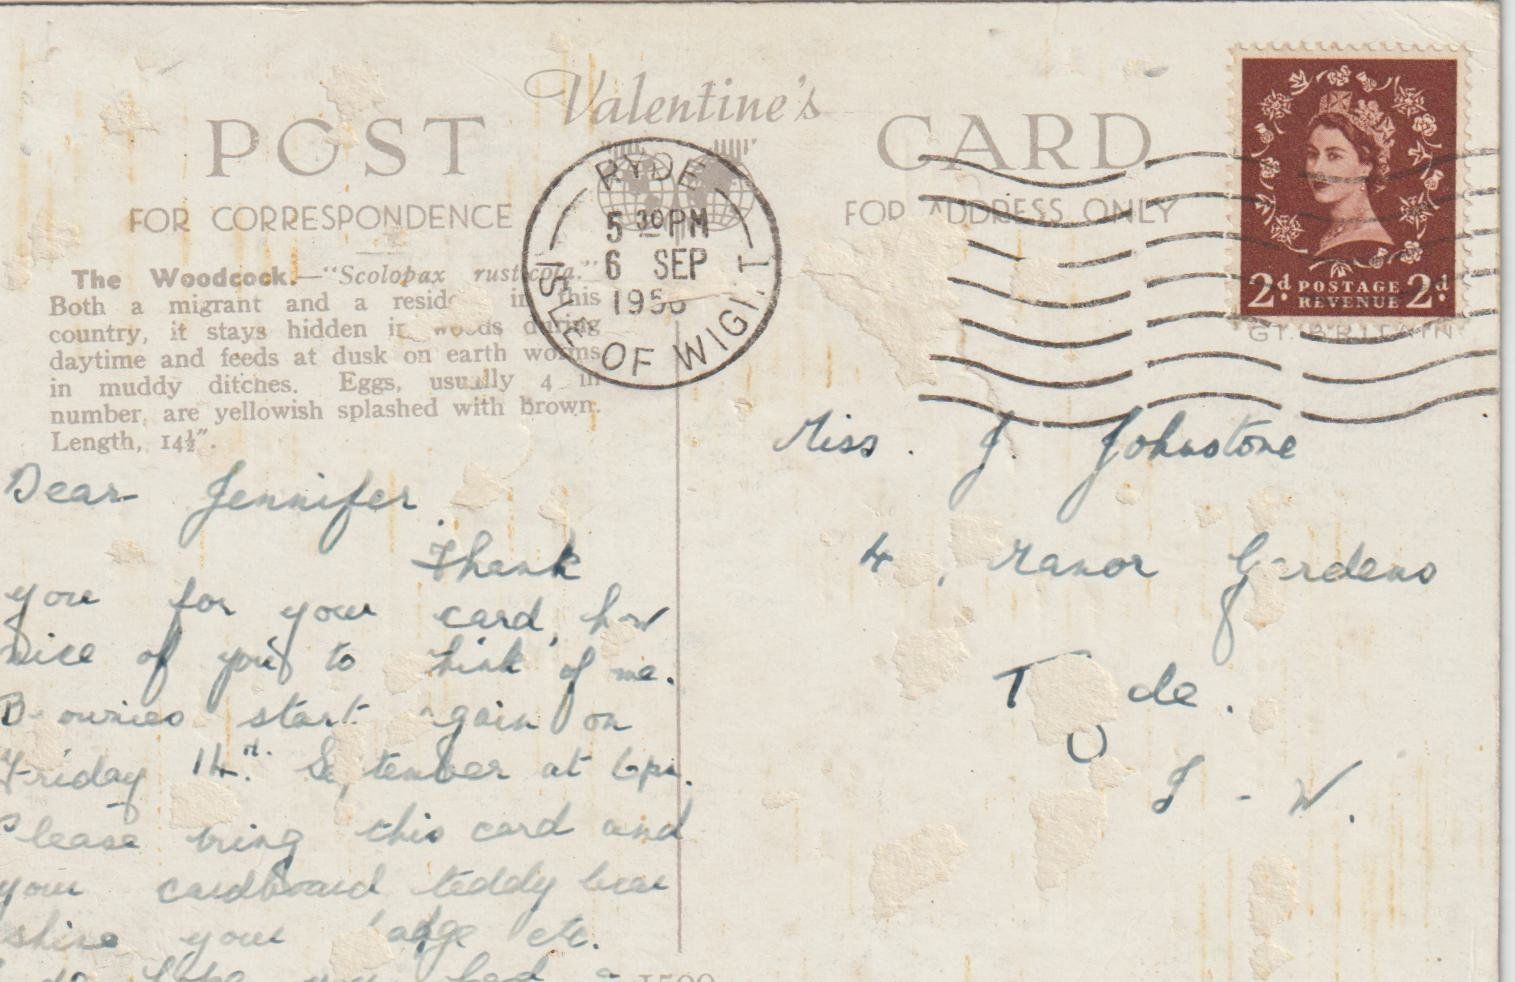 Valentine's
POST CARD
FOR CORRESPONDENCE
FOR ADDRESS ONLY
The Woodcock.—"Scolopax rusticola."
Both a migrant and a resident in this
country, it stays hidden in woods during
daytime and feeds at dusk on earth worms
in muddy ditches. Eggs, usually 4 in
number, are yellowish splashed with brown.
Length, 14½".
RYDE
5 30 PM
6 SEP
ISLE OF WIGHT
2d POSTAGE REVENUE 2d
GT. BRITAIN
Dear Jennifer
Thank
you for your card, how
nice of you to think of me.
Brownies start again on
Friday 14th September at 6pm.
Please bring this card and
your cardboard teddy bear
shine your badge etc.
hope you had a
Miss. J. Johnstone
4, Manor Gardens
Ryde.
I - W.